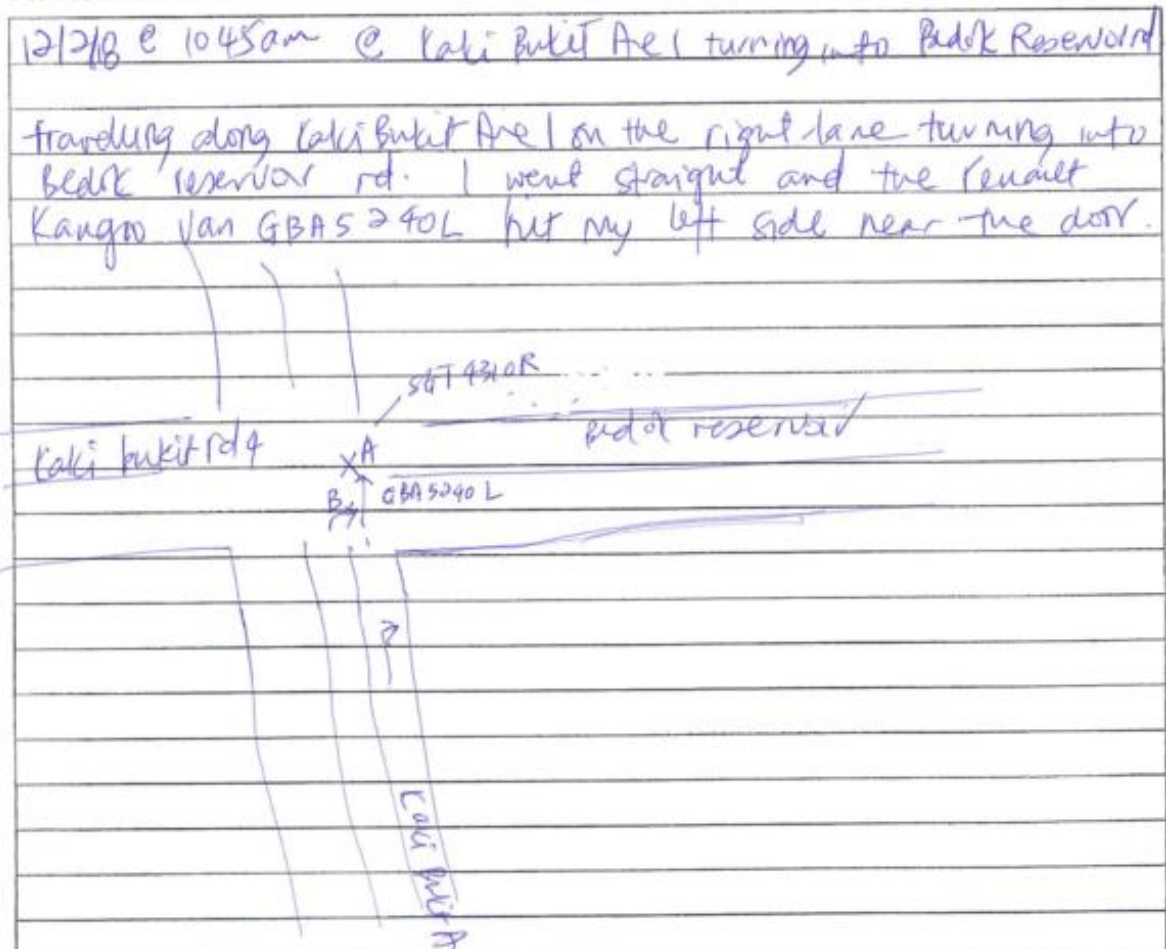 12/2/18 @ 1045am @ Kaki Bukit Ave 1 turning into Bedok Reservoir rd
travelling along Kaki Bukit Ave 1 on the right lane turning into
Bedok reservoir rd. I went straight and the renault
Kangoo van GBA5240L hit my left side near the door.
SGT4310R
Kaki bukit rd 4
bedok reservoir
A
B
GBA5240L
Kaki Bukit A